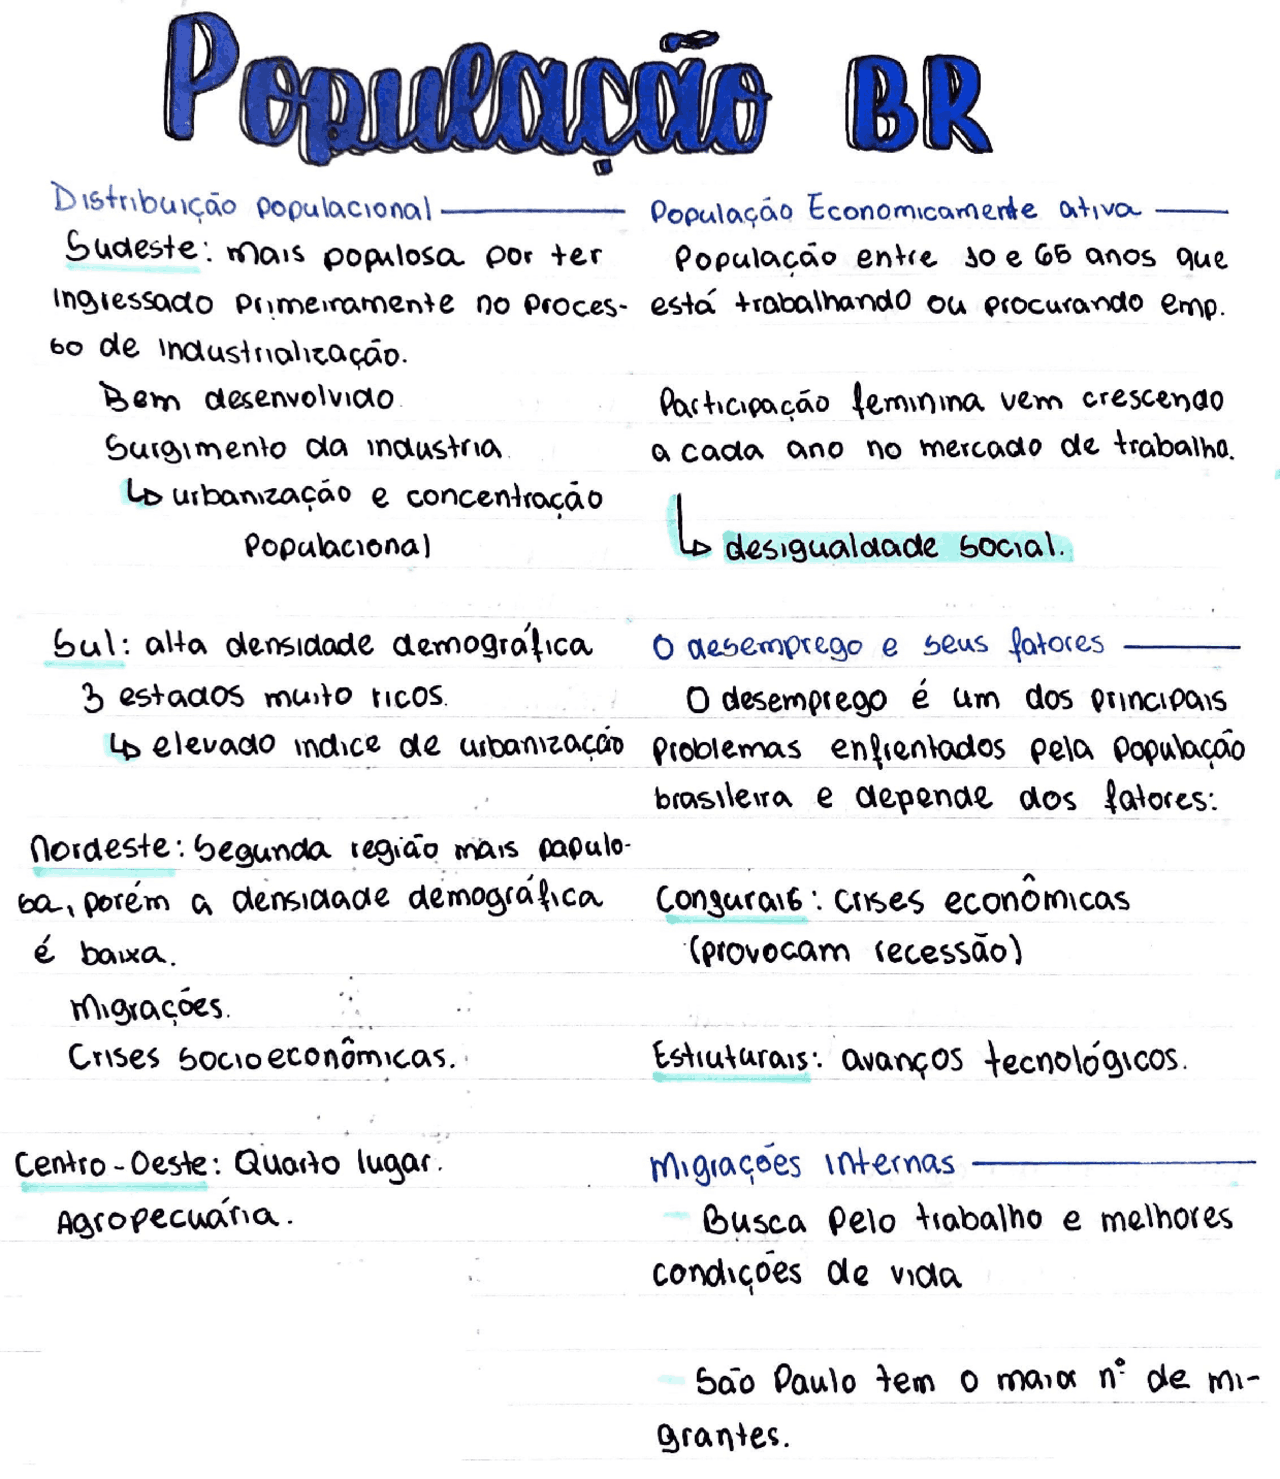 População BR
Distribuição populacional
Sudeste: mais populosa por ter
ingressado primeiramente no proces-
so de industrialização.
Bem desenvolvido.
Surgimento da industria.
↳ urbanização e concentração
populacional
Sul: alta densidade demográfica
3 estados muito ricos.
↳ elevado indice de urbanização
Nordeste: Segunda região mais populo-
sa, porém a densidade demográfica
é baixa.
Migrações.
Crises socioeconômicas.
Centro-Oeste: Quarto lugar.
Agropecuária.
População Economicamente ativa
População entre 10 e 65 anos que
está trabalhando ou procurando emp.
Participação feminina vem crescendo
a cada ano no mercado de trabalho.
↳ desigualdade social.
O desemprego e seus fatores
O desemprego é um dos principais
problemas enfrentados pela população
brasileira e depende dos fatores:
Congurais: crises econômicas
(provocam recessão)
Estruturais: avanços tecnológicos.
Migrações internas
- Busca pelo trabalho e melhores
condições de vida
- São Paulo tem o maior nº de mi-
grantes.